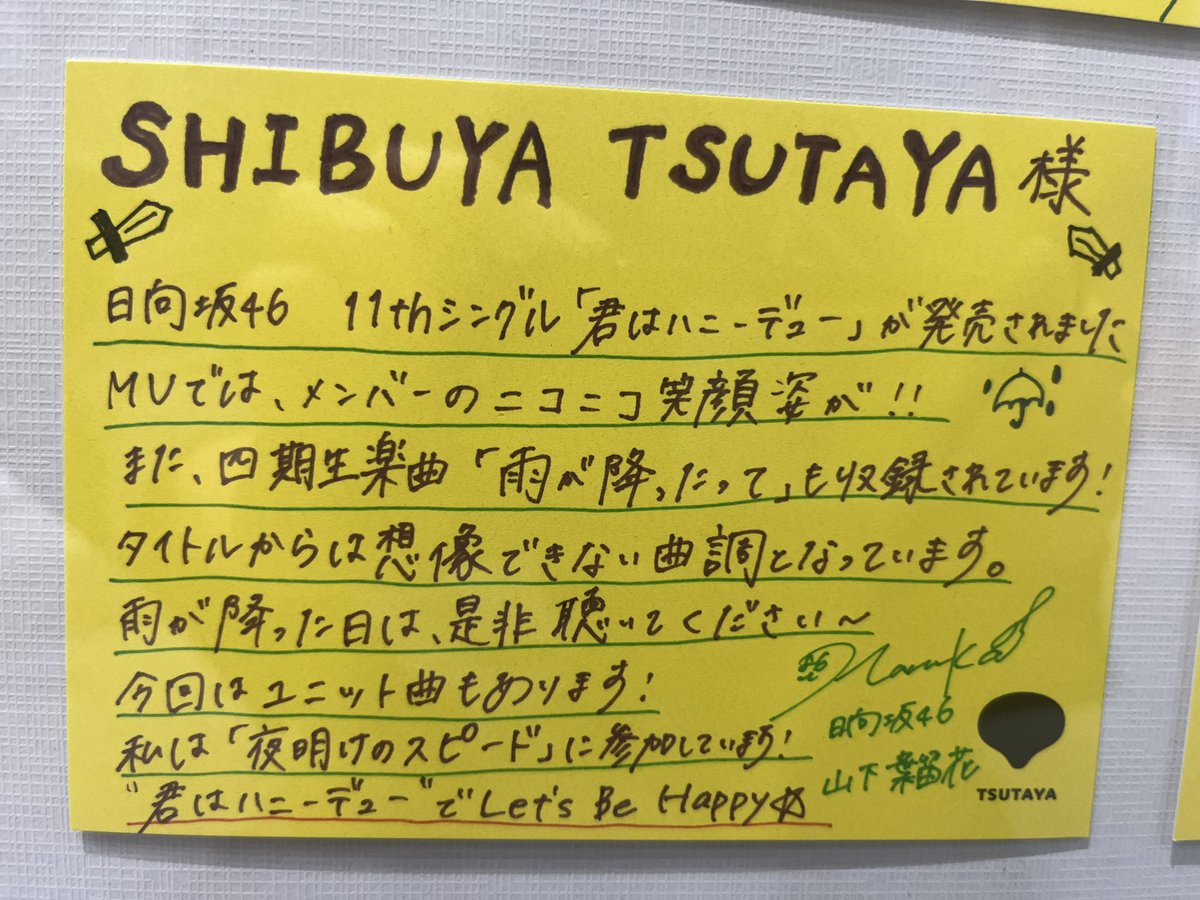 SHIBUYA TSUTAYA様
日向坂46 11thシングル「君はハニーデュー」が発売されました
MVでは、メンバーのニコニコ笑顔姿が!!
また、四期生楽曲「雨が降ったって」も収録されています!
タイトルからは想像できない曲調となっています。
雨が降った日は、是非聴いてください~
今回はユニット曲もあります!
私は「夜明けのスピード」に参加しています!
"君はハニーデュー"でLet's Be Happy☆
Haruka
日向坂46
山下葉留花
TSUTAYA